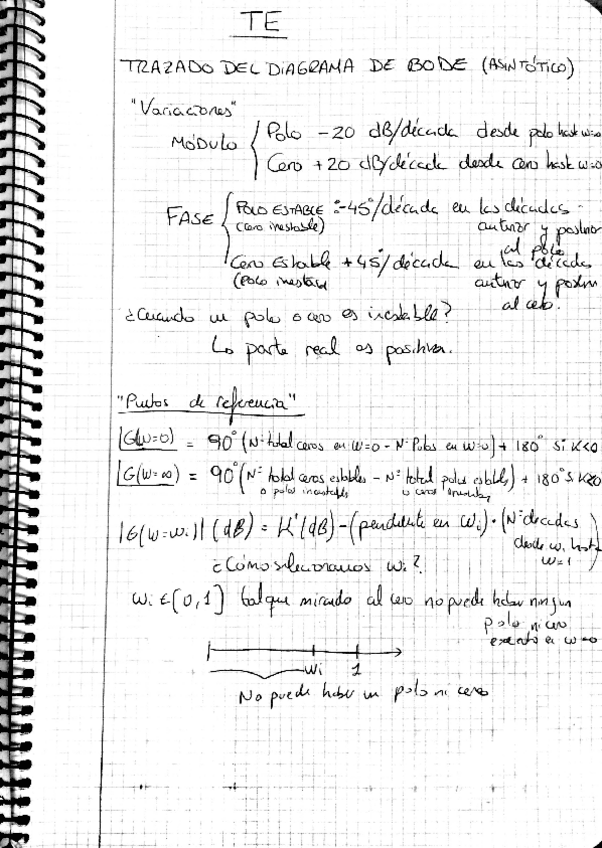 TE
TRAZADO DEL DIAGRAMA DE BODE (ASINTÓTICO)
"Variaciones"
MÓDULO
Polo -20 dB/década desde polo hast w=∞
Cero +20 dB/década desde cero hast w=∞
FASE
POLO ESTABLE: -45°/década en las décadas
(cero inestable) anterior y posterior
al polo
Cero Estable +45°/década en las décadas
(Polo inestable anterior y posterior
al cero.
¿Cuando un polo o cero es inestable?
La parte real es positiva.
"Puntos de referencia"
∠G(w=0) = 90° (Nº total ceros en w=0 - Nº Polos en w=0) + 180° si K<0
∠G(w=∞) = 90° (Nº total ceros estables - Nº total polos estables) + 180° si K<0
o polos inestables o ceros inestables
|G(w=wi)| (dB) = K'(dB) - (pendiente en wi) · (Nº decadas
desde wi hasta
w=1)
¿Cómo seleccionamos wi?
wi ∈ [0,1] tal que mirando al cero no puede haber ningun
polo ni cero
excepto en w=0
wi 1
No puede haber un polo ni cero